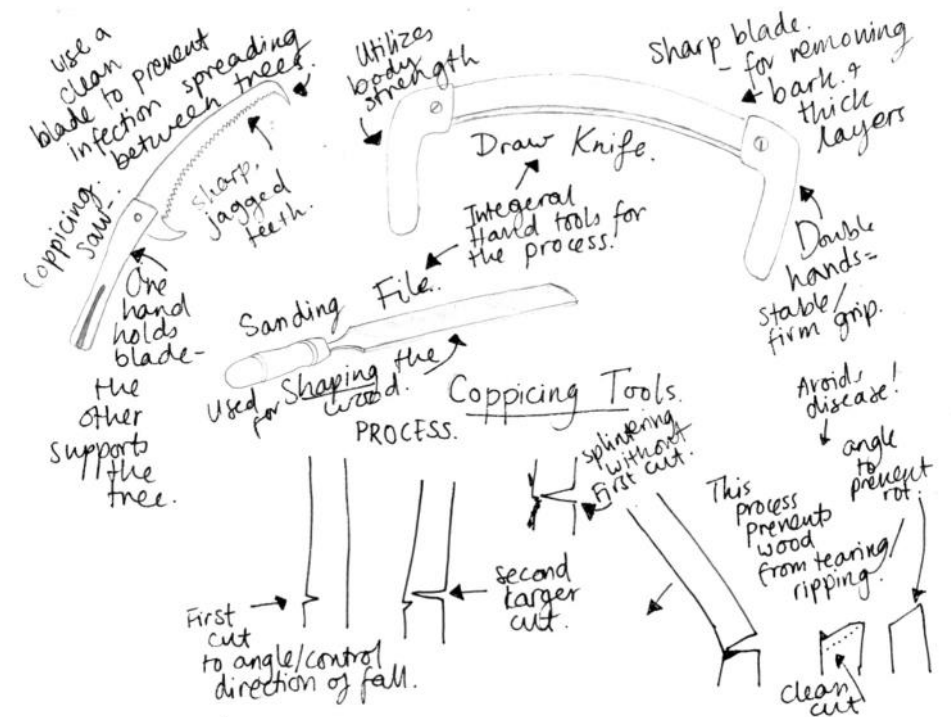 use a
clean
blade to prevent
infection spreading
between trees.
coppicing
saw-
sharp,
jagged
teeth.
One
hand
holds
blade-
the
other
supports
the
tree.
Utilizes
body
strength
Draw Knife.
Sharp blade.
- for removing
bark &
thick
layers
Integeral
Hand tools for
the process.
Double
hands=
stable/
firm grip.
Sanding File.
Used for Shaping the
wood.
Coppicing Tools.
PROCESS.
First
cut
to angle/control
direction of fall.
second
larger
cut.
splintering
without
First cut.
This
process
prevents
wood
from tearing/
ripping.
Avoids
disease!
angle
to
prevent
rot.
clean
cut